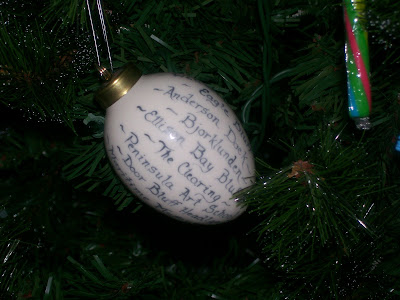 ~ Anderson Dock ~
~ Bjorklunden
~ Ellison Bay Bluff
~ The Clearing ~
~ Peninsula Art Sch
~ Door Bluff Head